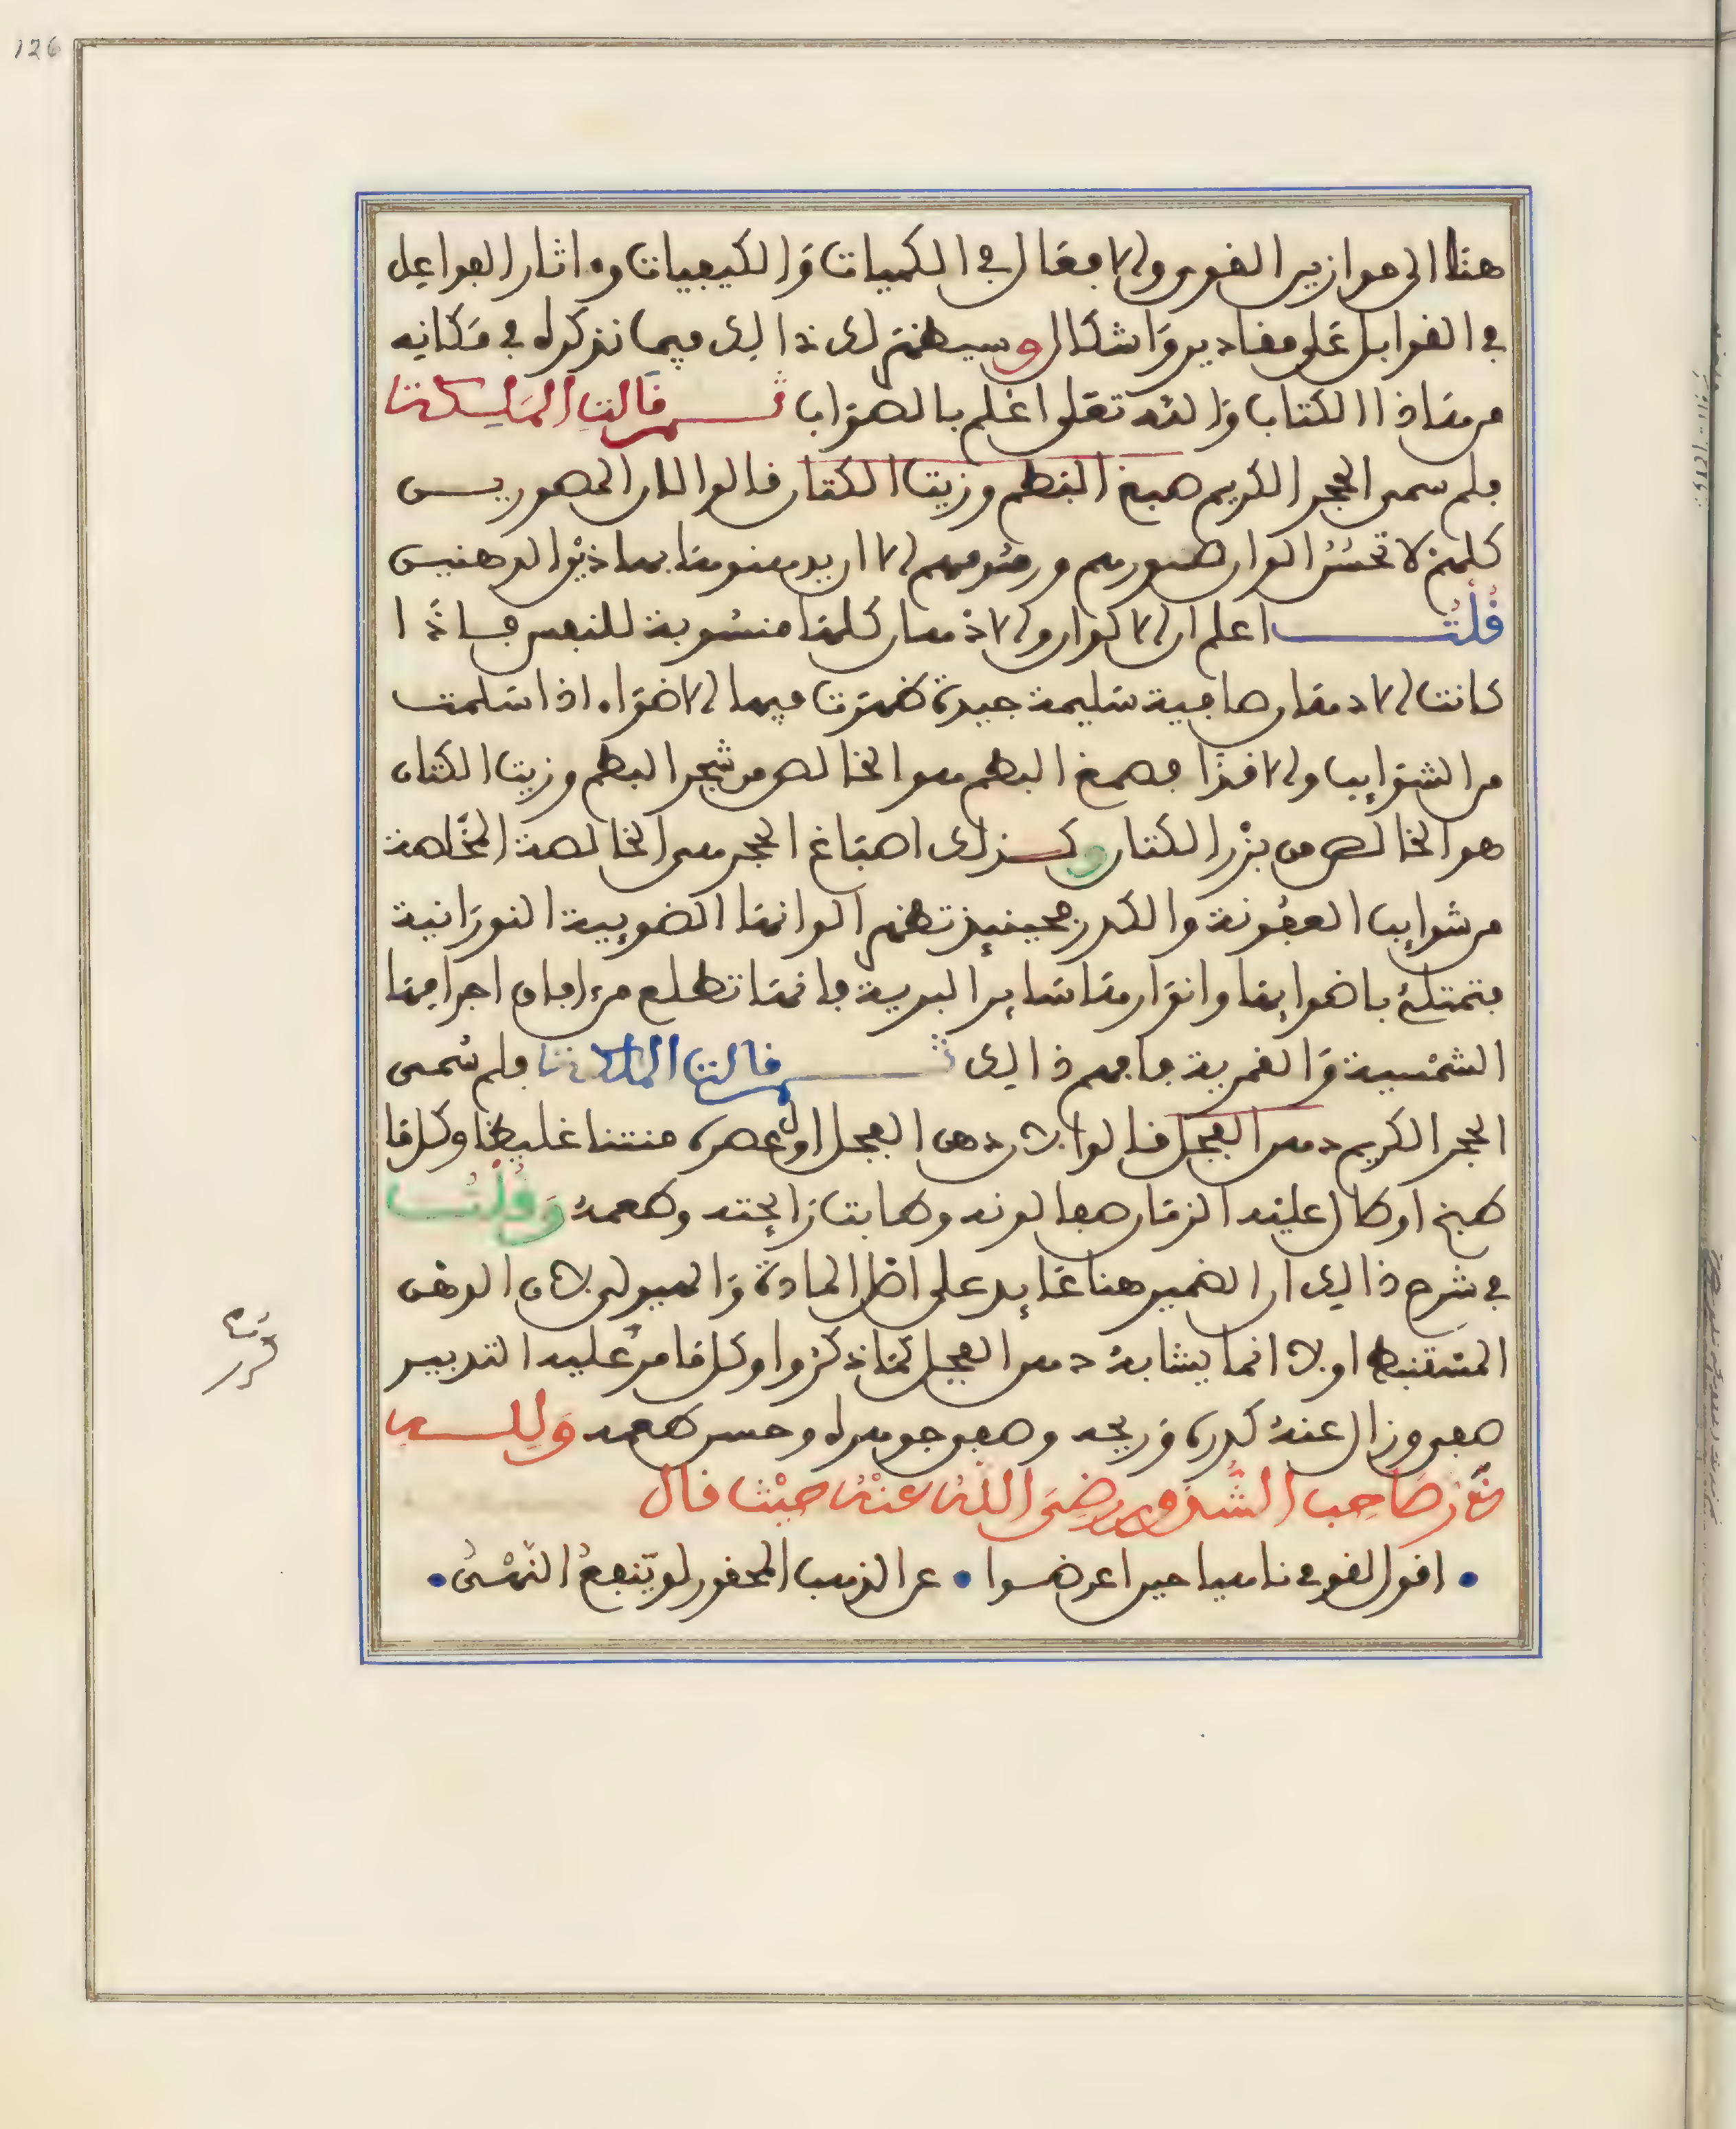 126
هنا الى موازين القوى والافعال في الكميات والكيفيات وءاثار الفواعل
في القوابل على مقادير واشكال وسيظهر لك ذالك فيما نذكره في مكانه
من هاذا الكتاب والله تعلى اعلم بالصواب ثم قالت الملكة
فلم سمى الحجر الكريم صمغ البطم وزيت الكتان قالوا لان المصورين
كلهم لا تحسن الوان صورهم ورقومهم الا ان يدهنوها بهاذين الدهنين
قلت اعلم ان الاكوان والاذهان كلها منسوبة للنفس فاذا
كانت الادهان صافية سليمة جيدة ظهرت فيها الاضواء اذا سلمت
من الشوايب والاقذا فصمغ البطم هو الخالص من شجر البطم وزيت الكتان
هو الخالص من بزر الكتان وكذلك اصباغ الحجر هى الخالصة المخلصة
من شوايب العفونة والكدر فحينيذ تظهر الوانها الضويية النورانية
فتمتلئ باضوايها وانوارها ساير البرية فانها تطلع من ءافاق اجرامها
الشمسية والقمرية فافهم ذالك ثم قالت الملكة فلم سمى
الحجر الكريم دهن الفجل قالوا لان دهن الفجل اول عصره منتنا غليظا وكل ما
طبخ او طال عليه الزمان صفا لونه وطابت رايحته وطعمه وقلت
في شرح ذالك ان الضمير هنا عايد على اصل المادة والهيولى لان الدهن
المستنبط اولا انما يشابه دهن الفجل كما ذكروا وكل ما مر عليه التدبير
صفى وزال عنه كدره وريحه وصفى جوهره وحسن طعمه ولله
در صاحب الشذور رضى الله عنه حيث قال
• اقول لقومى ناهيا حين اعرضوا • عن الذهب المحقور لو ينفع النهى •